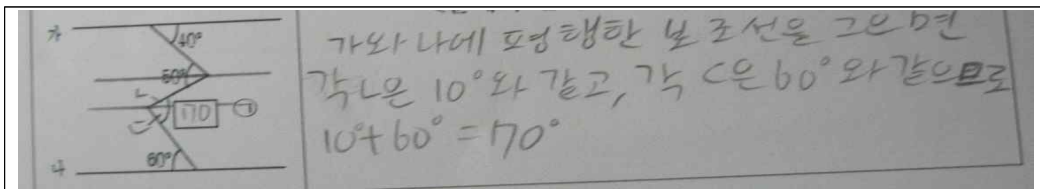 가
40°
50°
ㄴ
ㄷ
170
㉠
60°
나
가와 나에 평행한 보조선을 그으면
각ㄴ은 10°와 같고, 각 ㄷ은 60°와 같으므로
10°+60°=170°